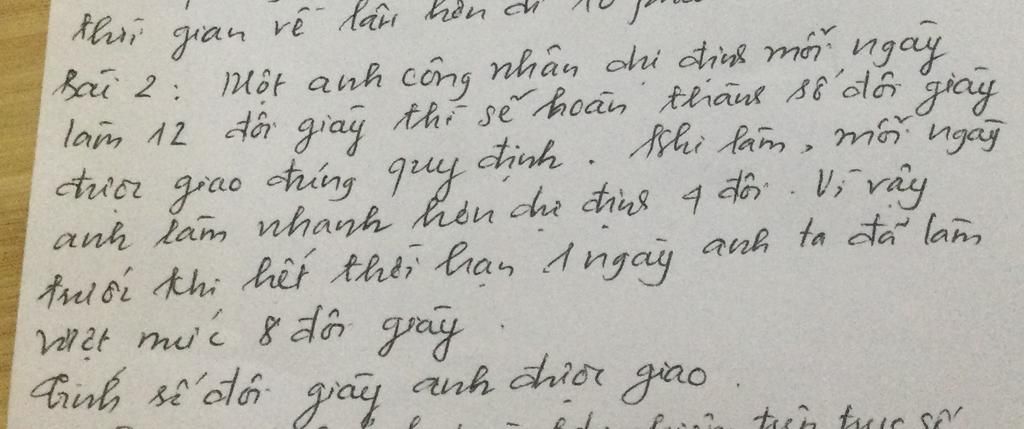 thời gian về lần hơn đi 10
Bài 2: Một anh công nhân dự định mỗi ngày
làm 12 đôi giày thì sẽ hoàn thành số đôi giày
được giao đúng quy định. Khi làm, mỗi ngày
anh làm nhanh hơn dự định 4 đôi. Vì vậy
trước khi hết thời hạn 1 ngày anh ta đã làm
vượt mức 8 đôi giày
Tính số đôi giày anh được giao.
trên trục số